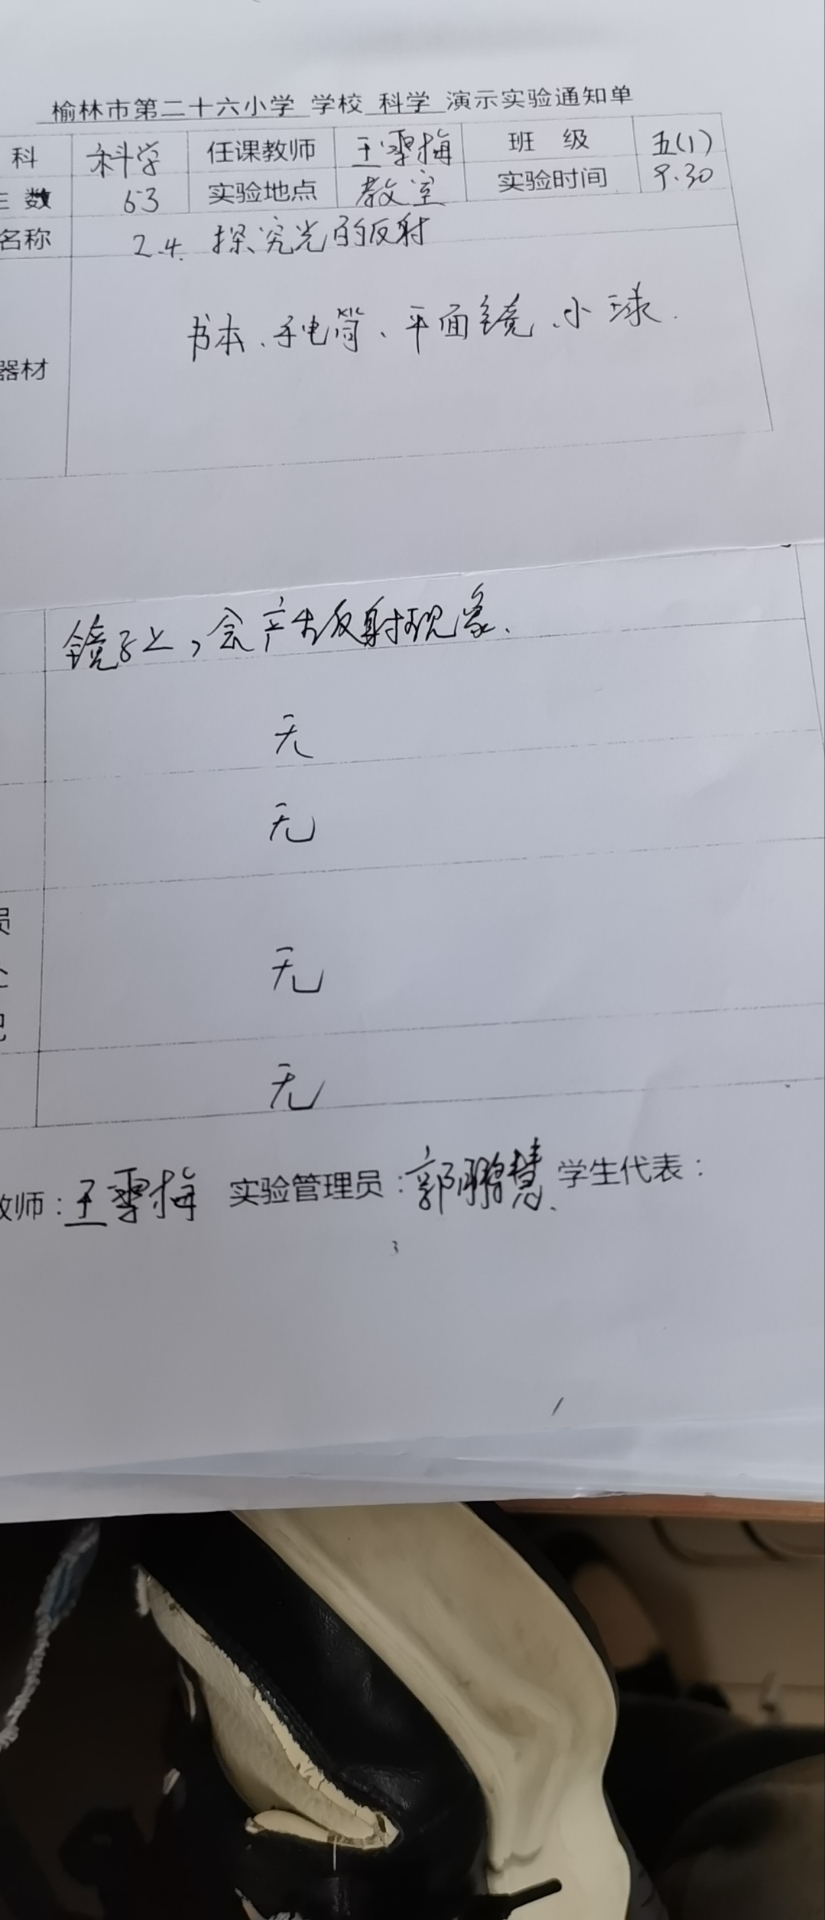 榆林市第二十六小学 学校 科学 演示实验通知单
科 科学 任课教师 王雪梅 班 级 五(1)
生 数 53 实验地点 教室 实验时间 9.30
名称 2.4. 探究光的反射
器材 书本、手电筒、平面镜、小球.
镜子上，会产生反射现象.
无
无
员
无
记
无
教师：王雪梅 实验管理员：郭鹏慧. 学生代表：